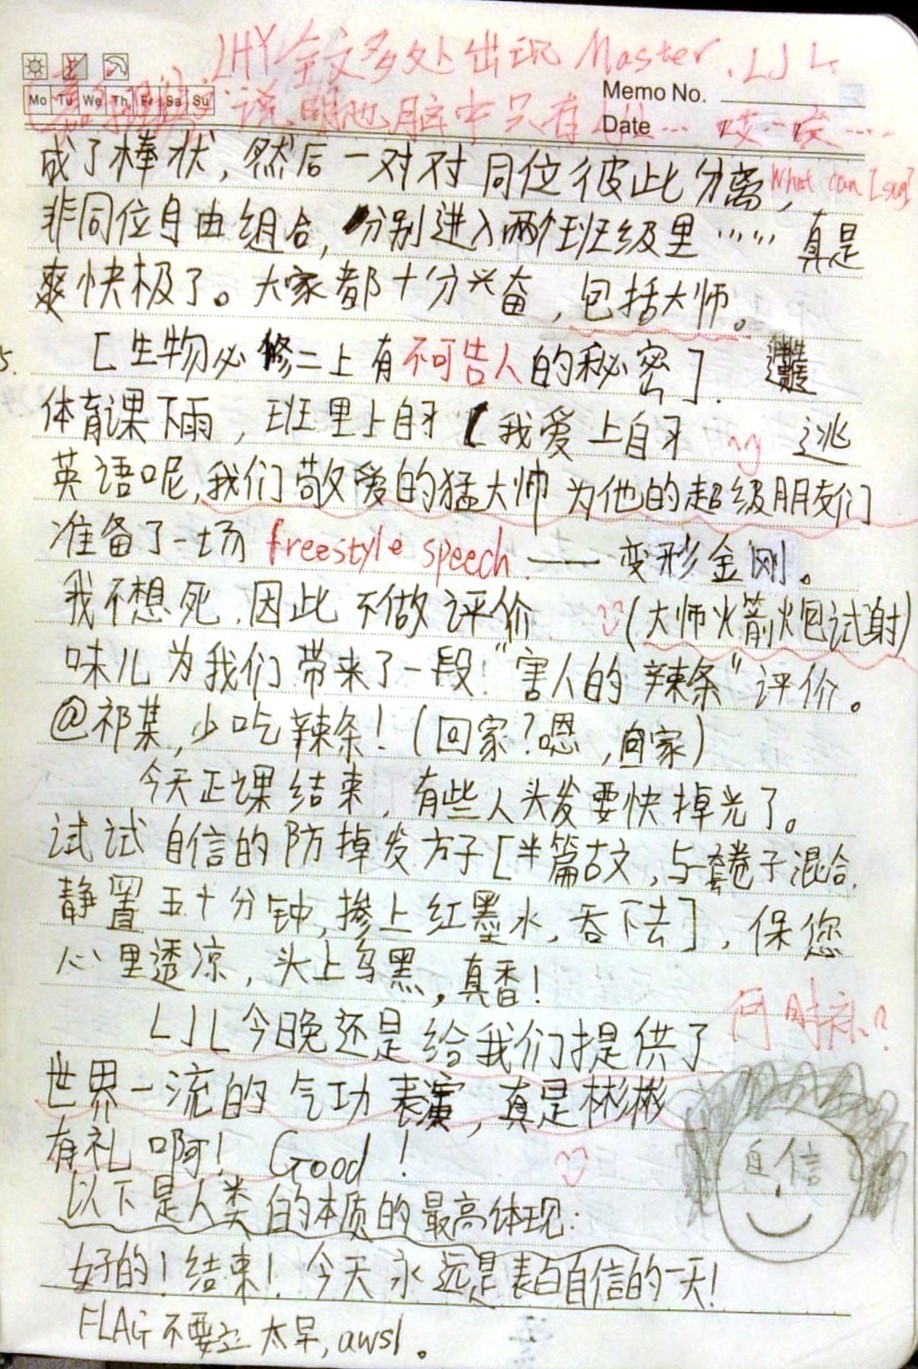 LHY全文多处出现 Master、LJL
Mo Tu We Th Fr Sa Su
Memo No.
说明他脑中只有 … 哎…哎……
Date
成了棒状，然后一对对同位彼此分离，
What can I say
非同位自由组合，分别进入两个班级里…… 真是
爽快极了。大家都十分兴奋，包括大师。
5.
[生物必修二上有不可告人的秘密].
体育课下雨，班里上自习[我爱上自习 逃
英语呢，我们敬爱的猛大帅为他的超级朋友们
准备了一场 freestyle speech. —— 变形金刚。
我不想死，因此不做评价 (大师火箭炮试射)
味儿为我们带来了一段！"害人的辣条"评价。
@祁某，少吃辣条！(回家？嗯，回家)
今天正课结束，有些人头发要快掉光了。
试试自信的防掉发方子[半篇古文，与卷子混合，
静置五十分钟，掺上红墨水，吞下去]，保您
心里透凉，头上乌黑，真香！
LJL今晚还是给我们提供了
世界一流的气功表演，真是彬彬
有礼啊！ Good！
自信
以下是人类的本质的最高体现：
好的！结束！今天永远是表白自信的一天！
FLAG不要立太早，awsl。